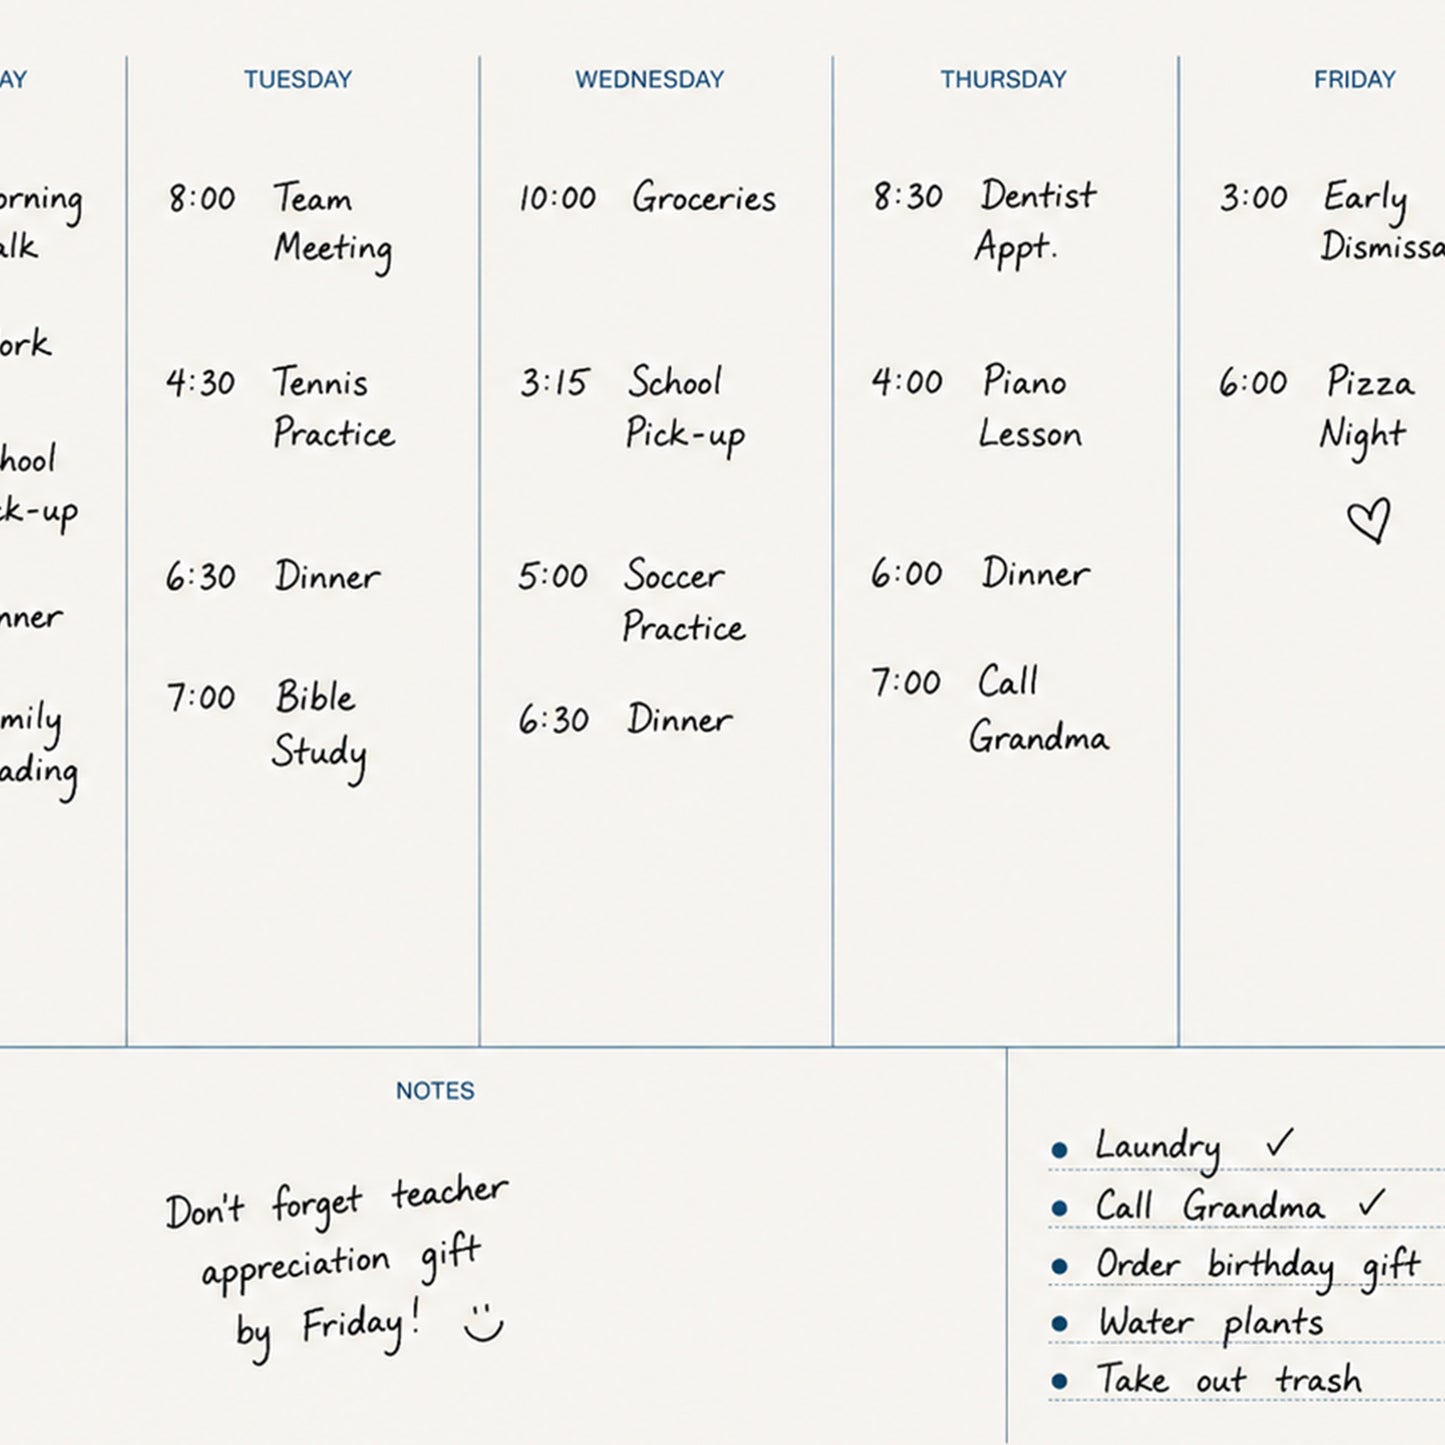 AY
orning
alk
ork
hool
ck-up
nner
mily
ading
TUESDAY
8:00 Team
Meeting
4:30 Tennis
Practice
6:30 Dinner
7:00 Bible
Study
WEDNESDAY
10:00 Groceries
3:15 School
Pick-up
5:00 Soccer
Practice
6:30 Dinner
THURSDAY
8:30 Dentist
Appt.
4:00 Piano
Lesson
6:00 Dinner
7:00 Call
Grandma
FRIDAY
3:00 Early
Dismissa
6:00 Pizza
Night
NOTES
Don't forget teacher
appreciation gift
by Friday!
Laundry ✓
Call Grandma ✓
Order birthday gift
Water plants
Take out trash